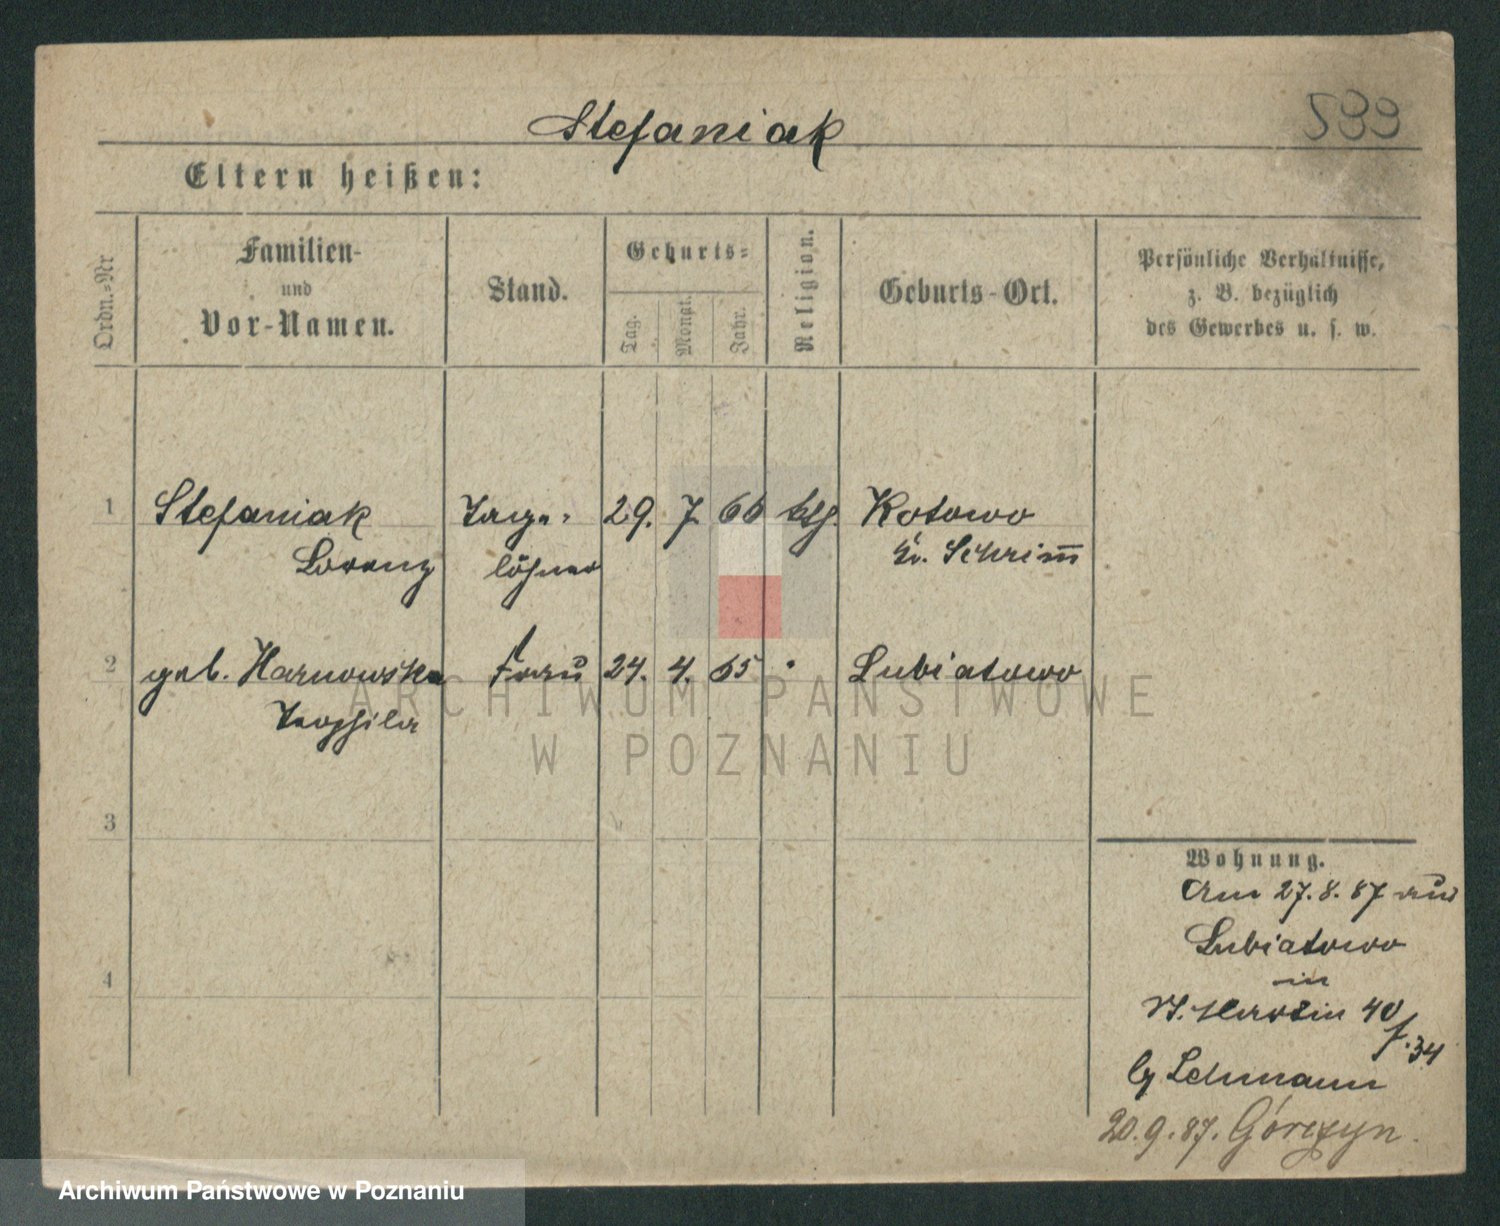 Stefaniak
533
Eltern heißen:
Ordn.-Nr
Familien-
und
Vor-Namen.
Stand.
Geburts-
Tag.
Monat.
Jahr.
Religion.
Geburts-Ort.
Persönliche Verhältnisse,
z. B. bezüglich
des Gewerbes u. s. w.
1 Stefaniak Tage- 29. 7. 66 ktg. Kotowo
Lorenz löhner Kr. Schrim̅
2 geb. Harnowska Frau 24. 4. 65 " Lubiatowo
Teophila
3
4
Wohnung.
Am 27.8.87 aus
Lubiatowo
in
St. Martin 40
f. 34
by Lehmann
20.9.87. Górczyn.
ARCHIWUM PAŃSTWOWE
W POZNANIU
Archiwum Państwowe w Poznaniu